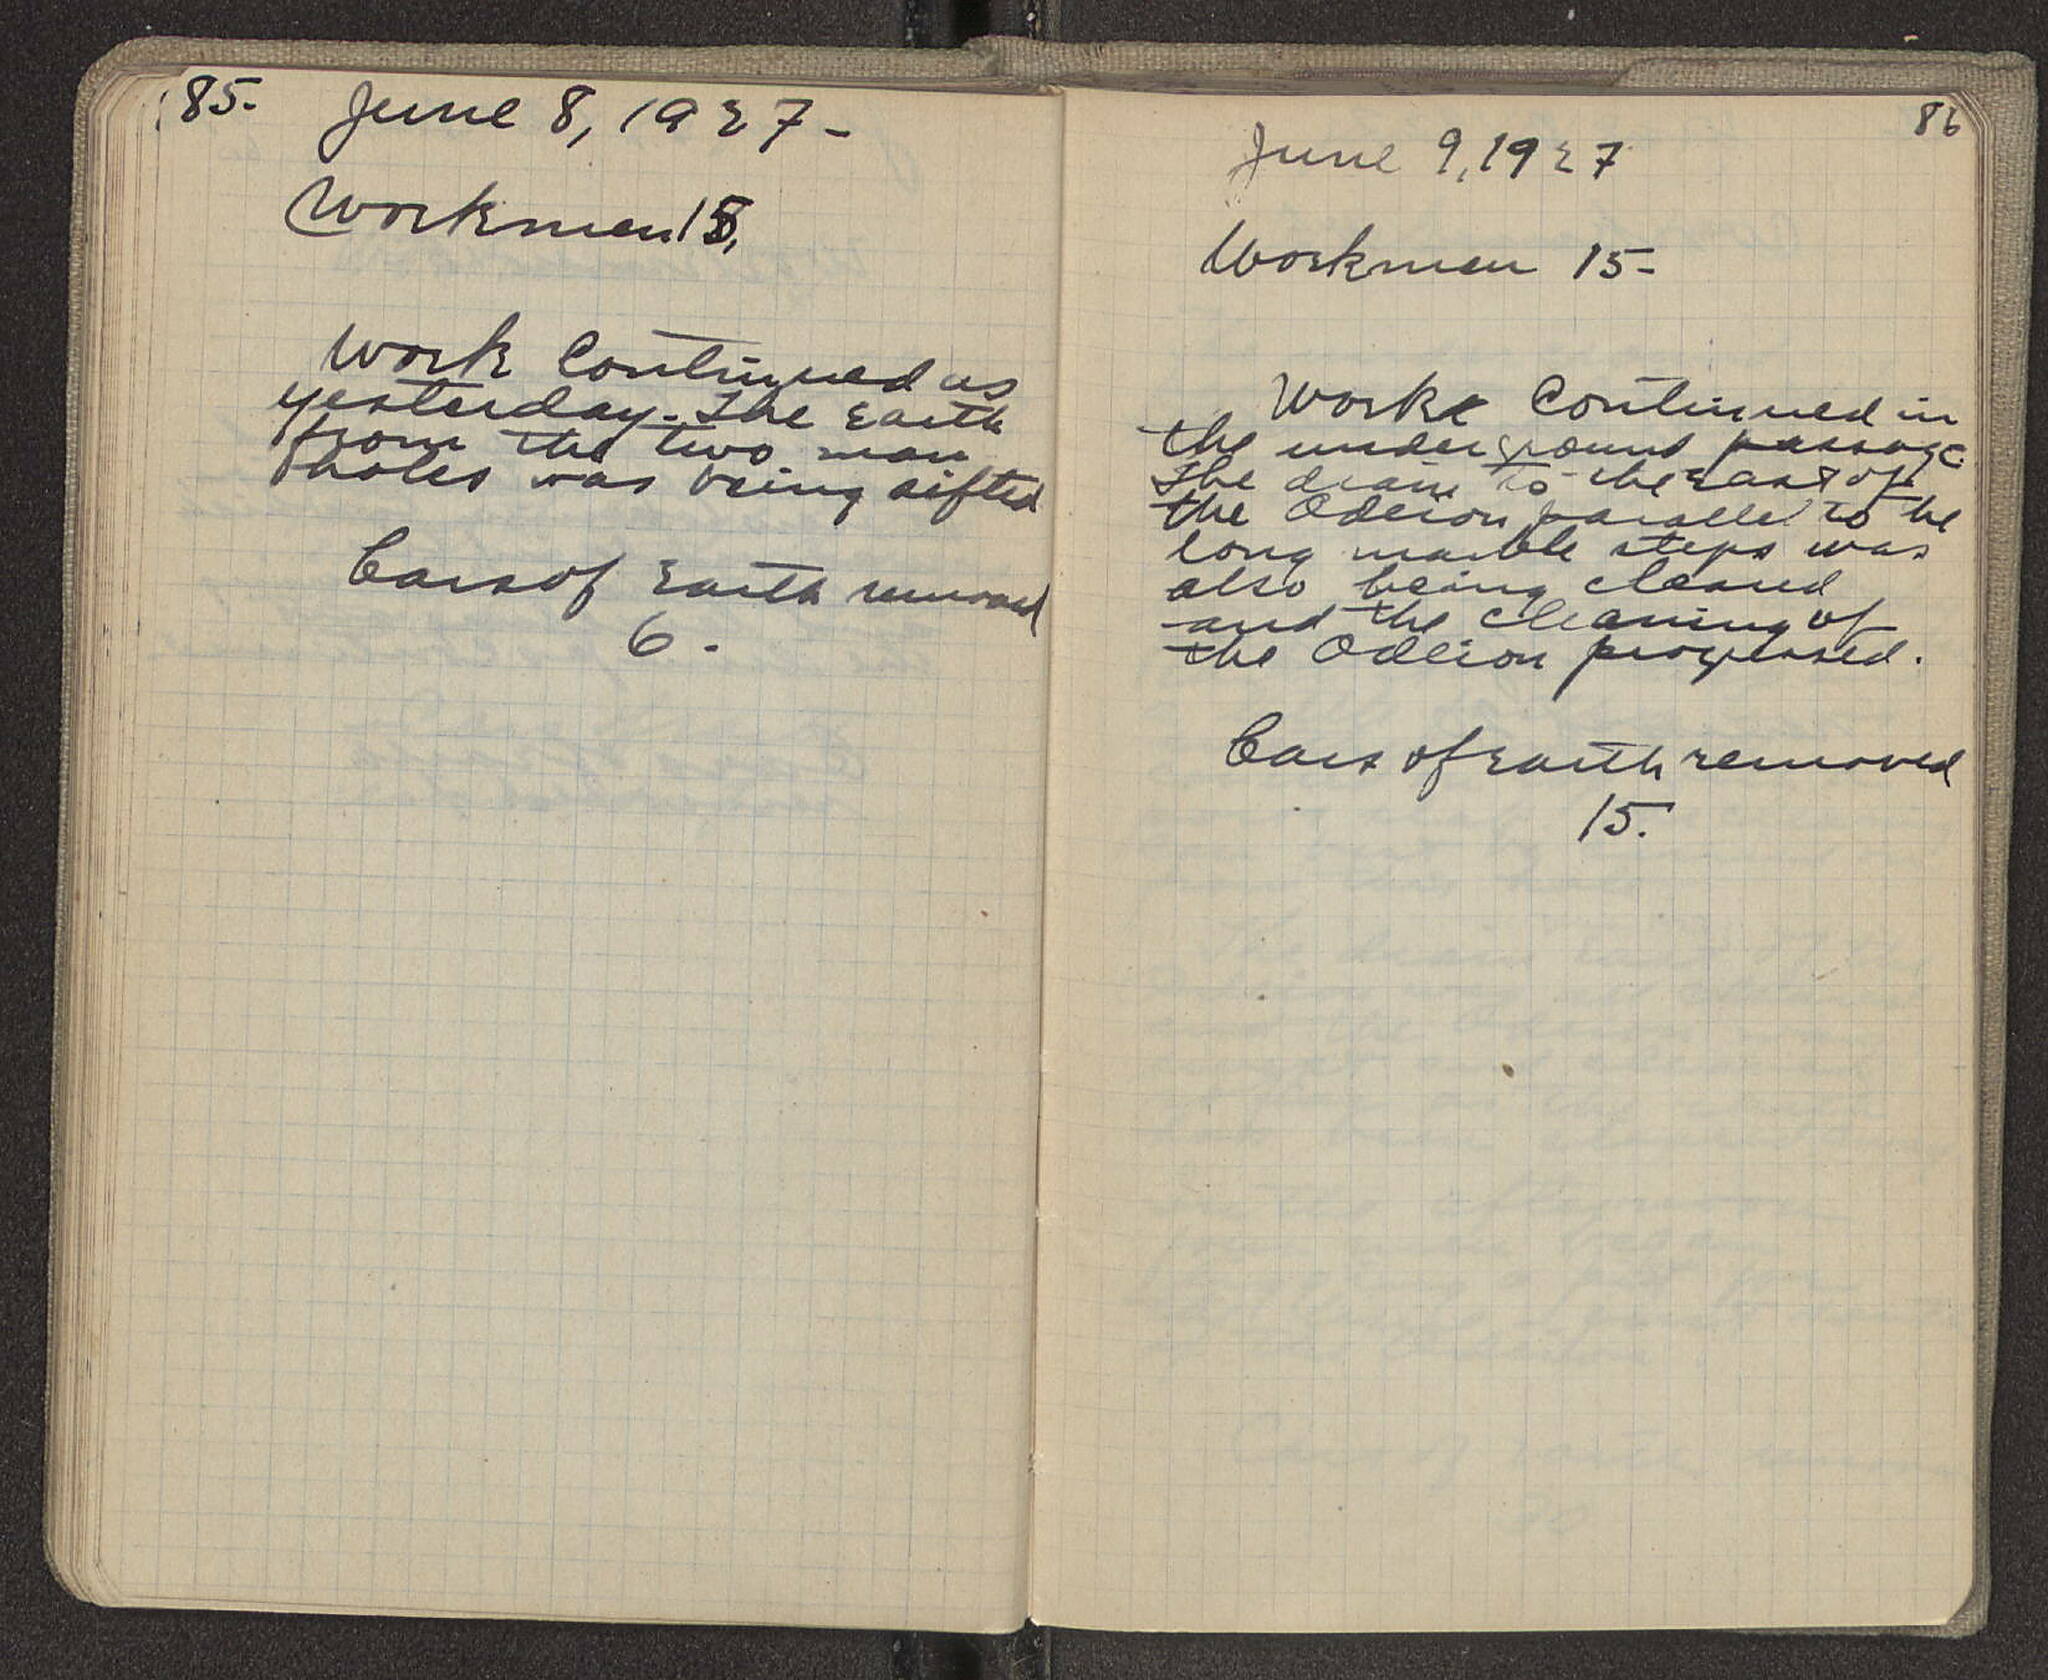 85.
June 8, 1927 -
Workmen 15,
Work Continued as
yesterday. The Earth
from the two man
holes was being sifted
Cars of Earth removed
6.
86
June 9, 1927
Workmen 15-
Work Continued in
the underground passage.
The drain to the East of
the Odeion parallel to the
long marble steps was
also being cleaned
and the cleaning of
the Odeion progressed.
Cars of Earth removed
15.